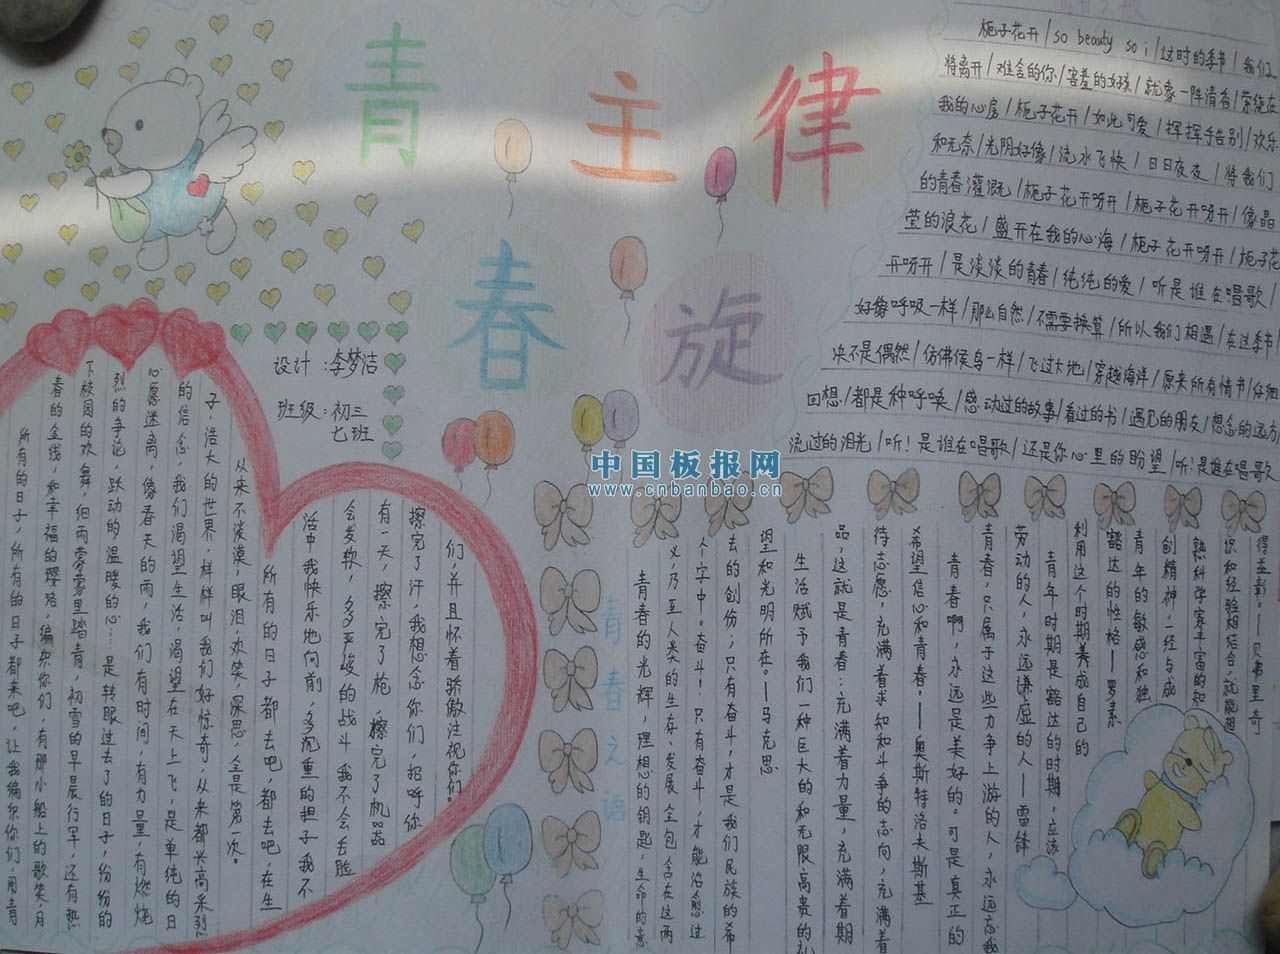 青 主 律
春 旋
设计：李梦洁
班级：初三
七班
栀子花开/so beauty so i/这时的季节/我们
将离开/难舍的你/害羞的女孩/就象一阵清香/萦绕在
我的心房/栀子花开/如此可爱/挥挥手告别/欢乐
和无奈/光阴好像/流水飞快/日日夜夜/将我们
的青春灌溉/栀子花开呀开/栀子花开呀开/像晶
莹的浪花/盛开在我的心海/栀子花开呀开/栀子花
开呀开/是淡淡的青春/纯纯的爱/听是谁在唱歌/
好像呼吸一样/那么自然/不需要换算/所以我们相遇/在这季节
决不是偶然/仿佛侯鸟一样/飞过大地/穿越海洋/原来所有情节/仔细
回想/都是种呼唤/感动过的故事/看过的书/遇见的朋友/想念的远方/
流过的泪光/听！是谁在唱歌/还是你心里的盼望/听！是谁在唱歌
中国板报网
www.cnbanbao.cn
所有的日子，所有的日子都来吧，让我编织你们，用青
春的金线，和幸福的璎珞，编织你们，有那小船上的歌笑，月
下校园的欢舞，细雨蒙蒙里踏青，初雪的早晨行军，还有热
烈的争论，跃动的温暖的心……是转眼过去了的日子，纷纷的
心愿迷离，像春天的雨，我们有时间，有力量，有燃烧
的信念，我们渴望生活，渴望在天上飞，是单纯的日
子，浩大的世界，样样叫我们好惊奇，从来都兴高采烈
从来不淡漠，眼泪，欢笑，深思，全是第一次。
所有的日子都去吧，都去吧，在生
活中我快乐地向前，多沉重的担子我不
会发软，多严峻的战斗我不会丢脸
有一天，擦完了枪，擦完了机器
擦完了汗，我想念你们，招呼你
们，并且怀着骄傲注视你们！
青春之语
得益彰。——贝弗里奇
识和经验相结合，就能相
熟科学家丰富的知
创精神，一经与成
青年的敏感和独
豁达的性格——罗素
利用这个时期养成自己的
青年时期是豁达的时期，应该
劳动的人，永远谦虚的人——雷锋
青春，只属于这些力争上游的人，永远忘我
青春啊，永远是美好的。可是真正的
希望信心和青春，——奥斯特洛夫斯基
待志愿，充满着求知和斗争的志向，充满着
品，这就是青春：充满着力量，充满着期
生活赋予我们一种巨大的和无限高贵的礼
望和光明所在。——马克思
去的创伤；只有奋斗，才是我们民族的希
个字中。奋斗！只有奋斗，才能治愈过
义，乃至人类的生存、发展全包含在这两
青春的光辉，理想的钥匙，生命的意